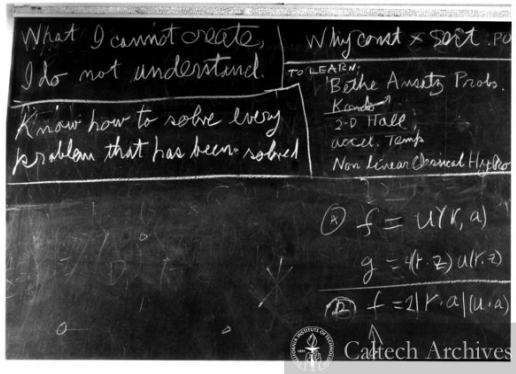 What I cannot create,
I do not understand.
Know how to solve every
problem that has been solved
Why const × sort . PO
TO LEARN:
Bethe Ansatz Probs.
Kondo
2-D Hall
accel. Temp
Non linear Classical Hydro
Ⓐ f = u(r, a)
g = 4(r·z) u(r, z)
Ⓑ f = 2|r·a|(u·a)
Caltech Archives